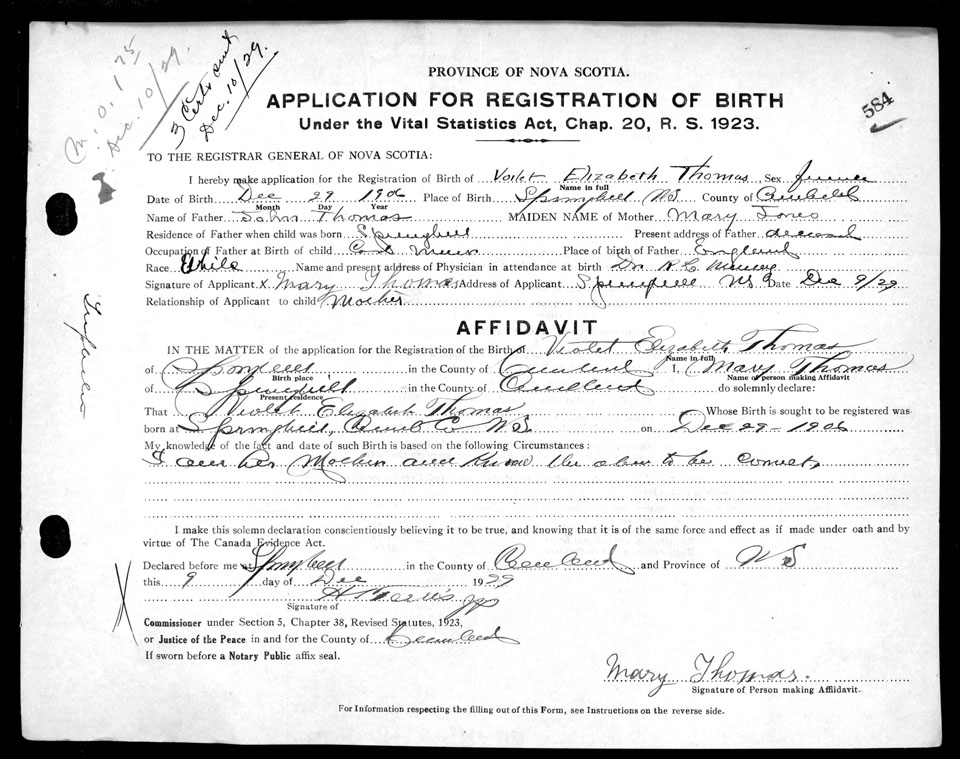 M.O. 1 75
Dec. 10/29.
3 Certs sent
Dec. 10/29.
584
PROVINCE OF NOVA SCOTIA.
APPLICATION FOR REGISTRATION OF BIRTH
Under the Vital Statistics Act, Chap. 20, R. S. 1923.
TO THE REGISTRAR GENERAL OF NOVA SCOTIA:
I hereby make application for the Registration of Birth of Voilet Elizabeth Thomas Sex
Name in full
Date of Birth Dec 29 1906 Place of Birth Springhill NS County of Cumberland
Month Day Year
Name of Father John Thomas MAIDEN NAME of Mother Mary Jones
Residence of Father when child was born Springhill Present address of Father deceased
Occupation of Father at Birth of child Coal Miner Place of birth of Father England
Race White Name and present address of Physician in attendance at birth Dr.
Signature of Applicant x Mary Thomas Address of Applicant Springhill NS Date Dec 9/29
Relationship of Applicant to child Mother
AFFIDAVIT
IN THE MATTER of the application for the Registration of the Birth of Violet Elizabeth Thomas
Name in full
of Springhill in the County of Cumberland I, Mary Thomas
Birth place Name of Person making Affidavit
of Springhill in the County of Cumberland do solemnly declare:
Present residence
That Violet Elizabeth Thomas Whose Birth is sought to be registered was
born at Springhill, Cumb Co NS. on Dec 29 - 1906
My knowledge of the fact and date of such Birth is based on the following Circumstances:
I am her Mother and know the above to be correct,
I make this solemn declaration conscientiously believing it to be true, and knowing that it is of the same force and effect as if made under oath and by
virtue of The Canada Evidence Act.
Declared before me at Springhill in the County of Cumberland and Province of N S
this 9 day of Dec 1929
Signature of
Commissioner under Section 5, Chapter 38, Revised Statutes, 1923,
or Justice of the Peace in and for the County of Cumberland
If sworn before a Notary Public affix seal.
Mary Thomas.
Signature of Person making Affidavit.
For Information respecting the filling out of this Form, see Instructions on the reverse side.